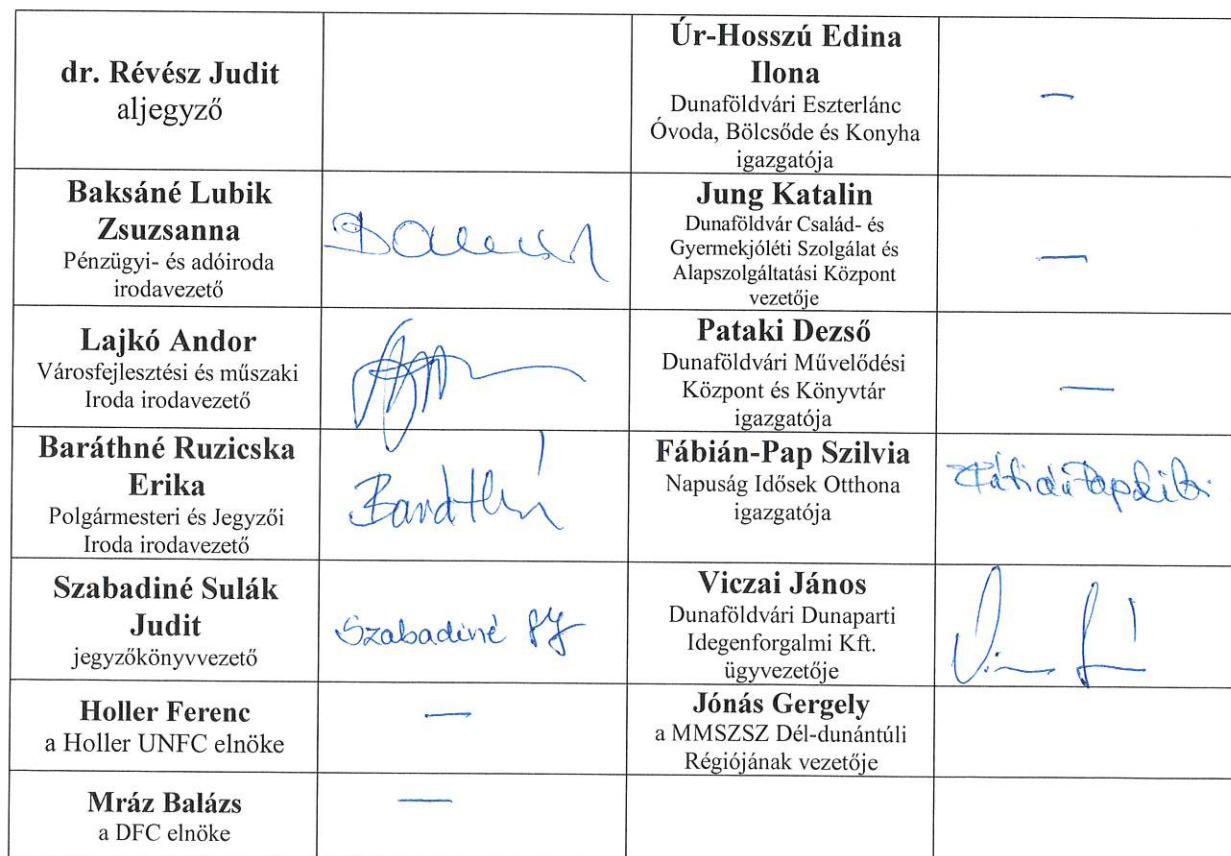 dr. Révész Judit
aljegyző
Úr-Hosszú Edina
Ilona
Dunaföldvári Eszterlánc
Óvoda, Bölcsőde és Konyha
igazgatója
—
Baksáné Lubik
Zsuzsanna
Pénzügyi- és adóiroda
irodavezető
Jung Katalin
Dunaföldvár Család- és
Gyermekjóléti Szolgálat és
Alapszolgáltatási Központ
vezetője
—
Lajkó Andor
Városfejlesztési és műszaki
Iroda irodavezető
Pataki Dezső
Dunaföldvári Művelődési
Központ és Könyvtár
igazgatója
—
Baráthné Ruzicska
Erika
Polgármesteri és Jegyzői
Iroda irodavezető
Fábián-Pap Szilvia
Napuság Idősek Otthona
igazgatója
Szabadiné Sulák
Judit
jegyzőkönyvvezető
Szabadiné SJ
Viczai János
Dunaföldvári Dunaparti
Idegenforgalmi Kft.
ügyvezetője
Holler Ferenc
a Holler UNFC elnöke
—
Jónás Gergely
a MMSZSZ Dél-dunántúli
Régiójának vezetője
Mráz Balázs
a DFC elnöke
—